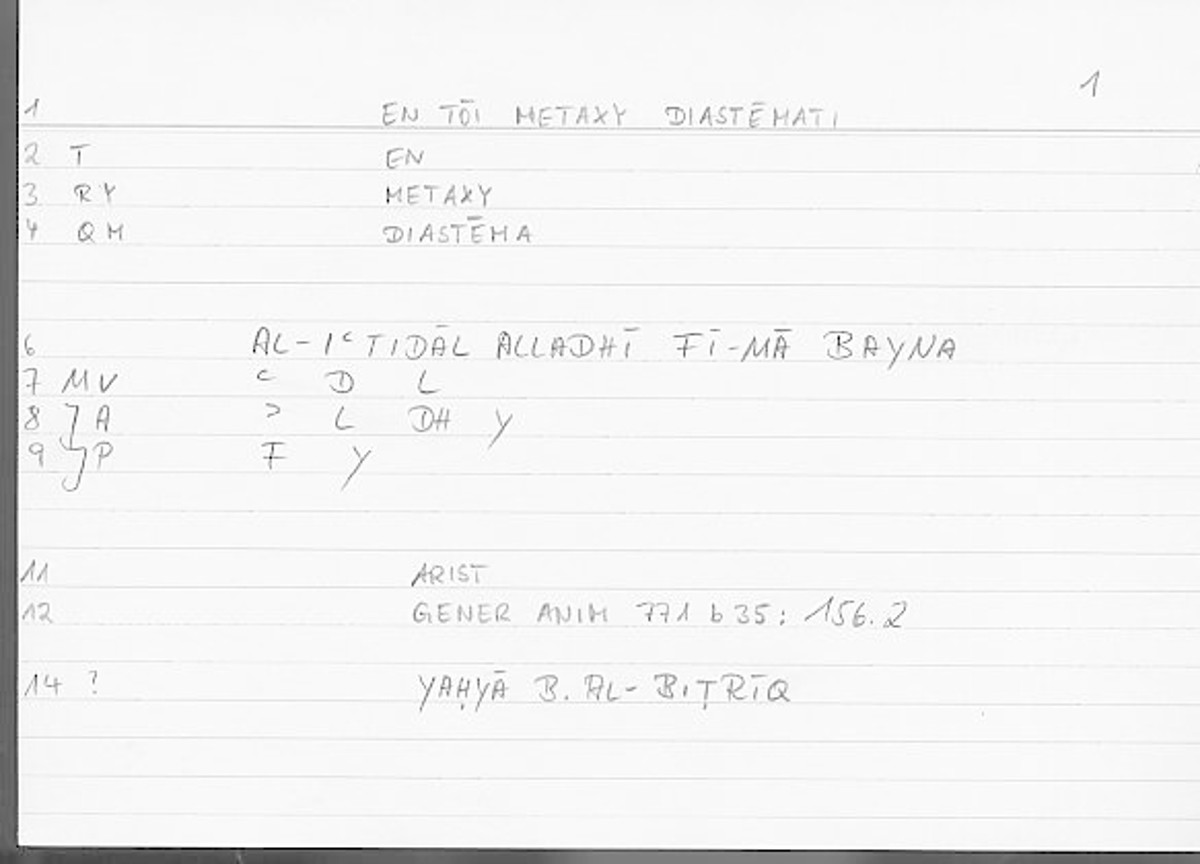 1
1 EN TŌI METAXY DIASTĒMATI
2 T EN
3 RY METAXY
4 QM DIASTĒMA
6 AL-IʿTIDĀL ALLADHĪ FĪ-MĀ BAYNA
7 MV ʿ D L
8 } A ʾ L DH Y
9 } P F Y
11 ARIST
12 GENER ANIM 771 b 35 : 156.2
14 ? YAḤYĀ B. AL-BIṬRĪQ